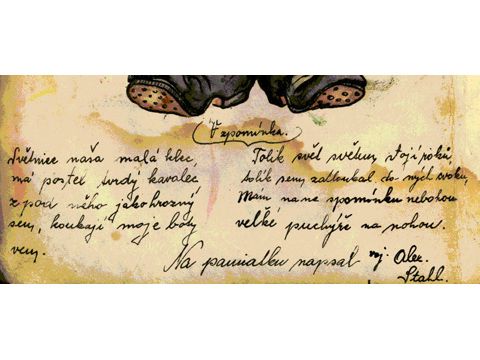 Vzpomínka.
Světnice naša malá klec,
má postel tvrdý kavalec
z pod něho jako hrozný
sen, koukají moje boty
ven.
Tolik svět světem stojí
tolik sem zatloukal do nych cvoků,
Mám na ne spomínku nebohou
velké puchýře na nohou.
Na pamiatku napsal
Stahl.